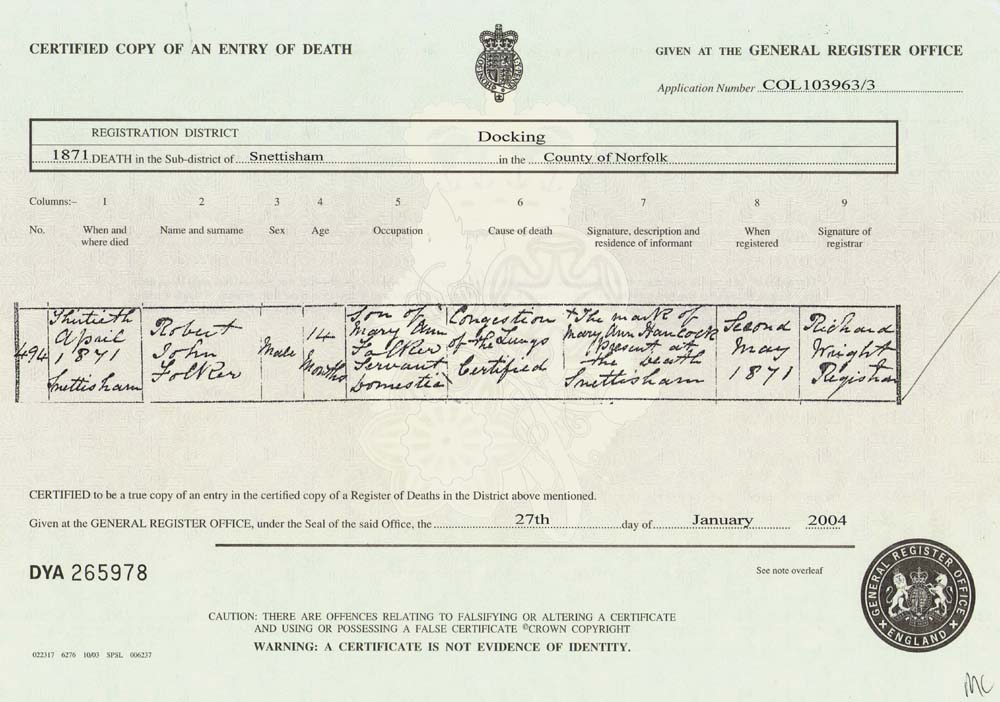 CERTIFIED COPY OF AN ENTRY OF DEATH
GIVEN AT THE GENERAL REGISTER OFFICE
Application Number COL103963/3
REGISTRATION DISTRICT Docking
1871 DEATH in the Sub-district of Snettisham in the County of Norfolk
Columns:– 1 2 3 4 5 6 7 8 9
No. When and where died Name and surname Sex Age Occupation Cause of death Signature, description and residence of informant When registered Signature of registrar
494
Thirtieth
April
1871
Snettisham
Robert
John
Folker
Male
14
Months
Son of
Mary Ann
Folker
Servant
Domestic
Congestion
of the Lungs
Certified
+ The mark of
Mary Ann Hancock
Present at
the death
Snettisham
Second
May
1871
Richard
Wright
Registrar
CERTIFIED to be a true copy of an entry in the certified copy of a Register of Deaths in the District above mentioned.
Given at the GENERAL REGISTER OFFICE, under the Seal of the said Office, the 27th day of January 2004
DYA 265978
See note overleaf
CAUTION: THERE ARE OFFENCES RELATING TO FALSIFYING OR ALTERING A CERTIFICATE
AND USING OR POSSESSING A FALSE CERTIFICATE ©CROWN COPYRIGHT
WARNING: A CERTIFICATE IS NOT EVIDENCE OF IDENTITY.
GENERAL REGISTER OFFICE
ENGLAND
022317 6276 10/03 SPSL 006237
MC